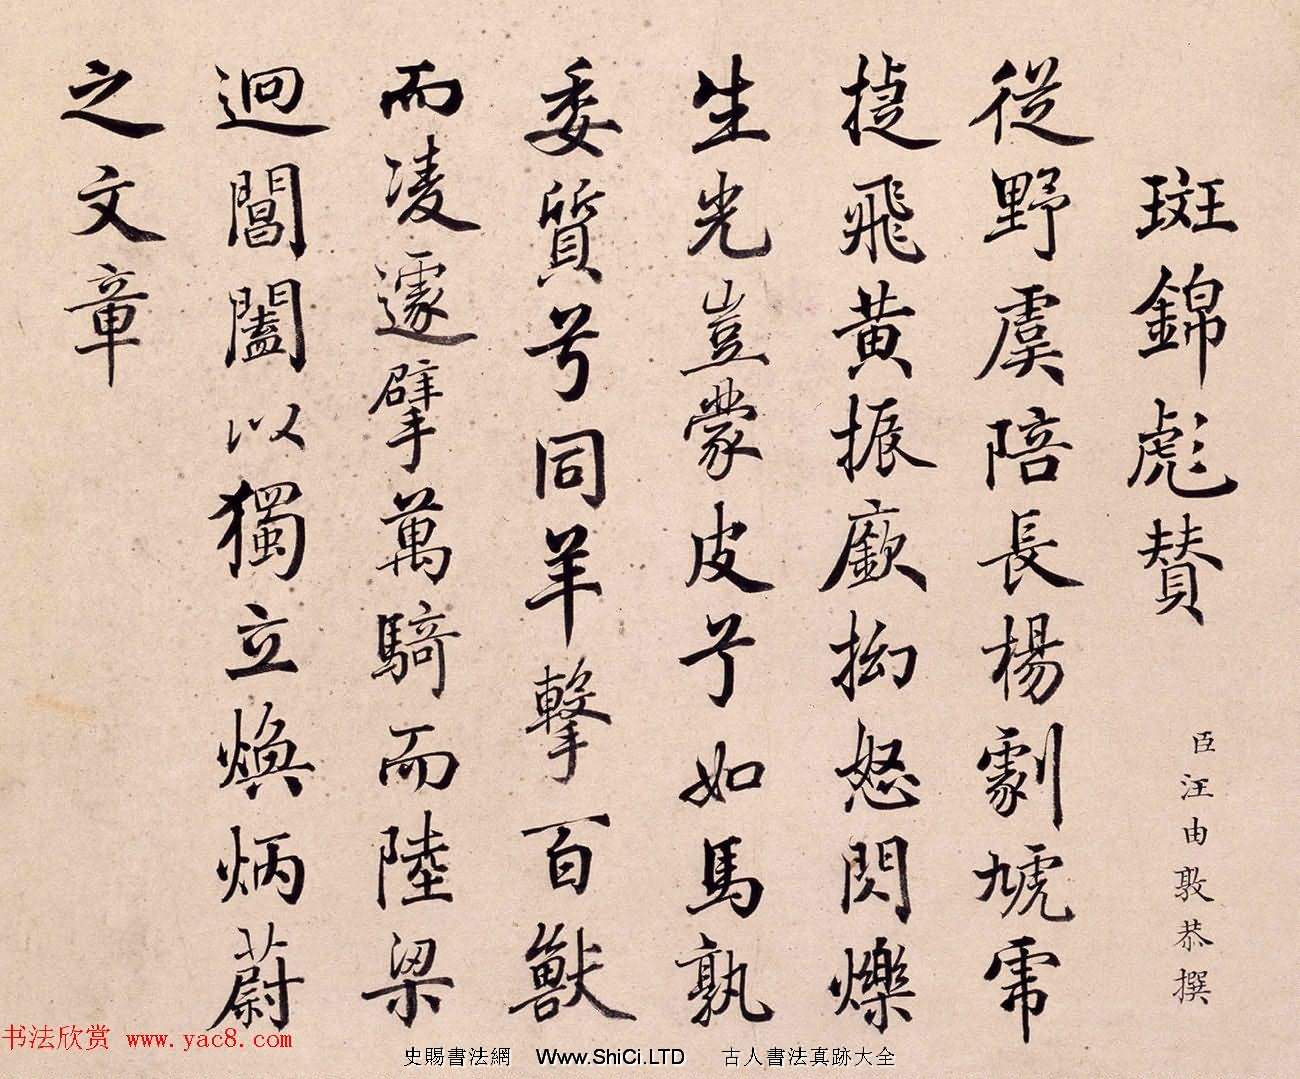 斑錦彪贊
臣汪由敦恭撰
從野虞陪長楊劇虓虎
捷飛黃振廞拗怒閃爍
生光豈蒙皮兮如馬孰
委質兮同羊擊百獸
而凌遽擘萬騎而陸梁
迴閶闔以獨立煥炳蔚
之文章
书法欣赏 www.yac8.com
史賜書法網 Www.ShiCi.LTD 古人書法真跡大全